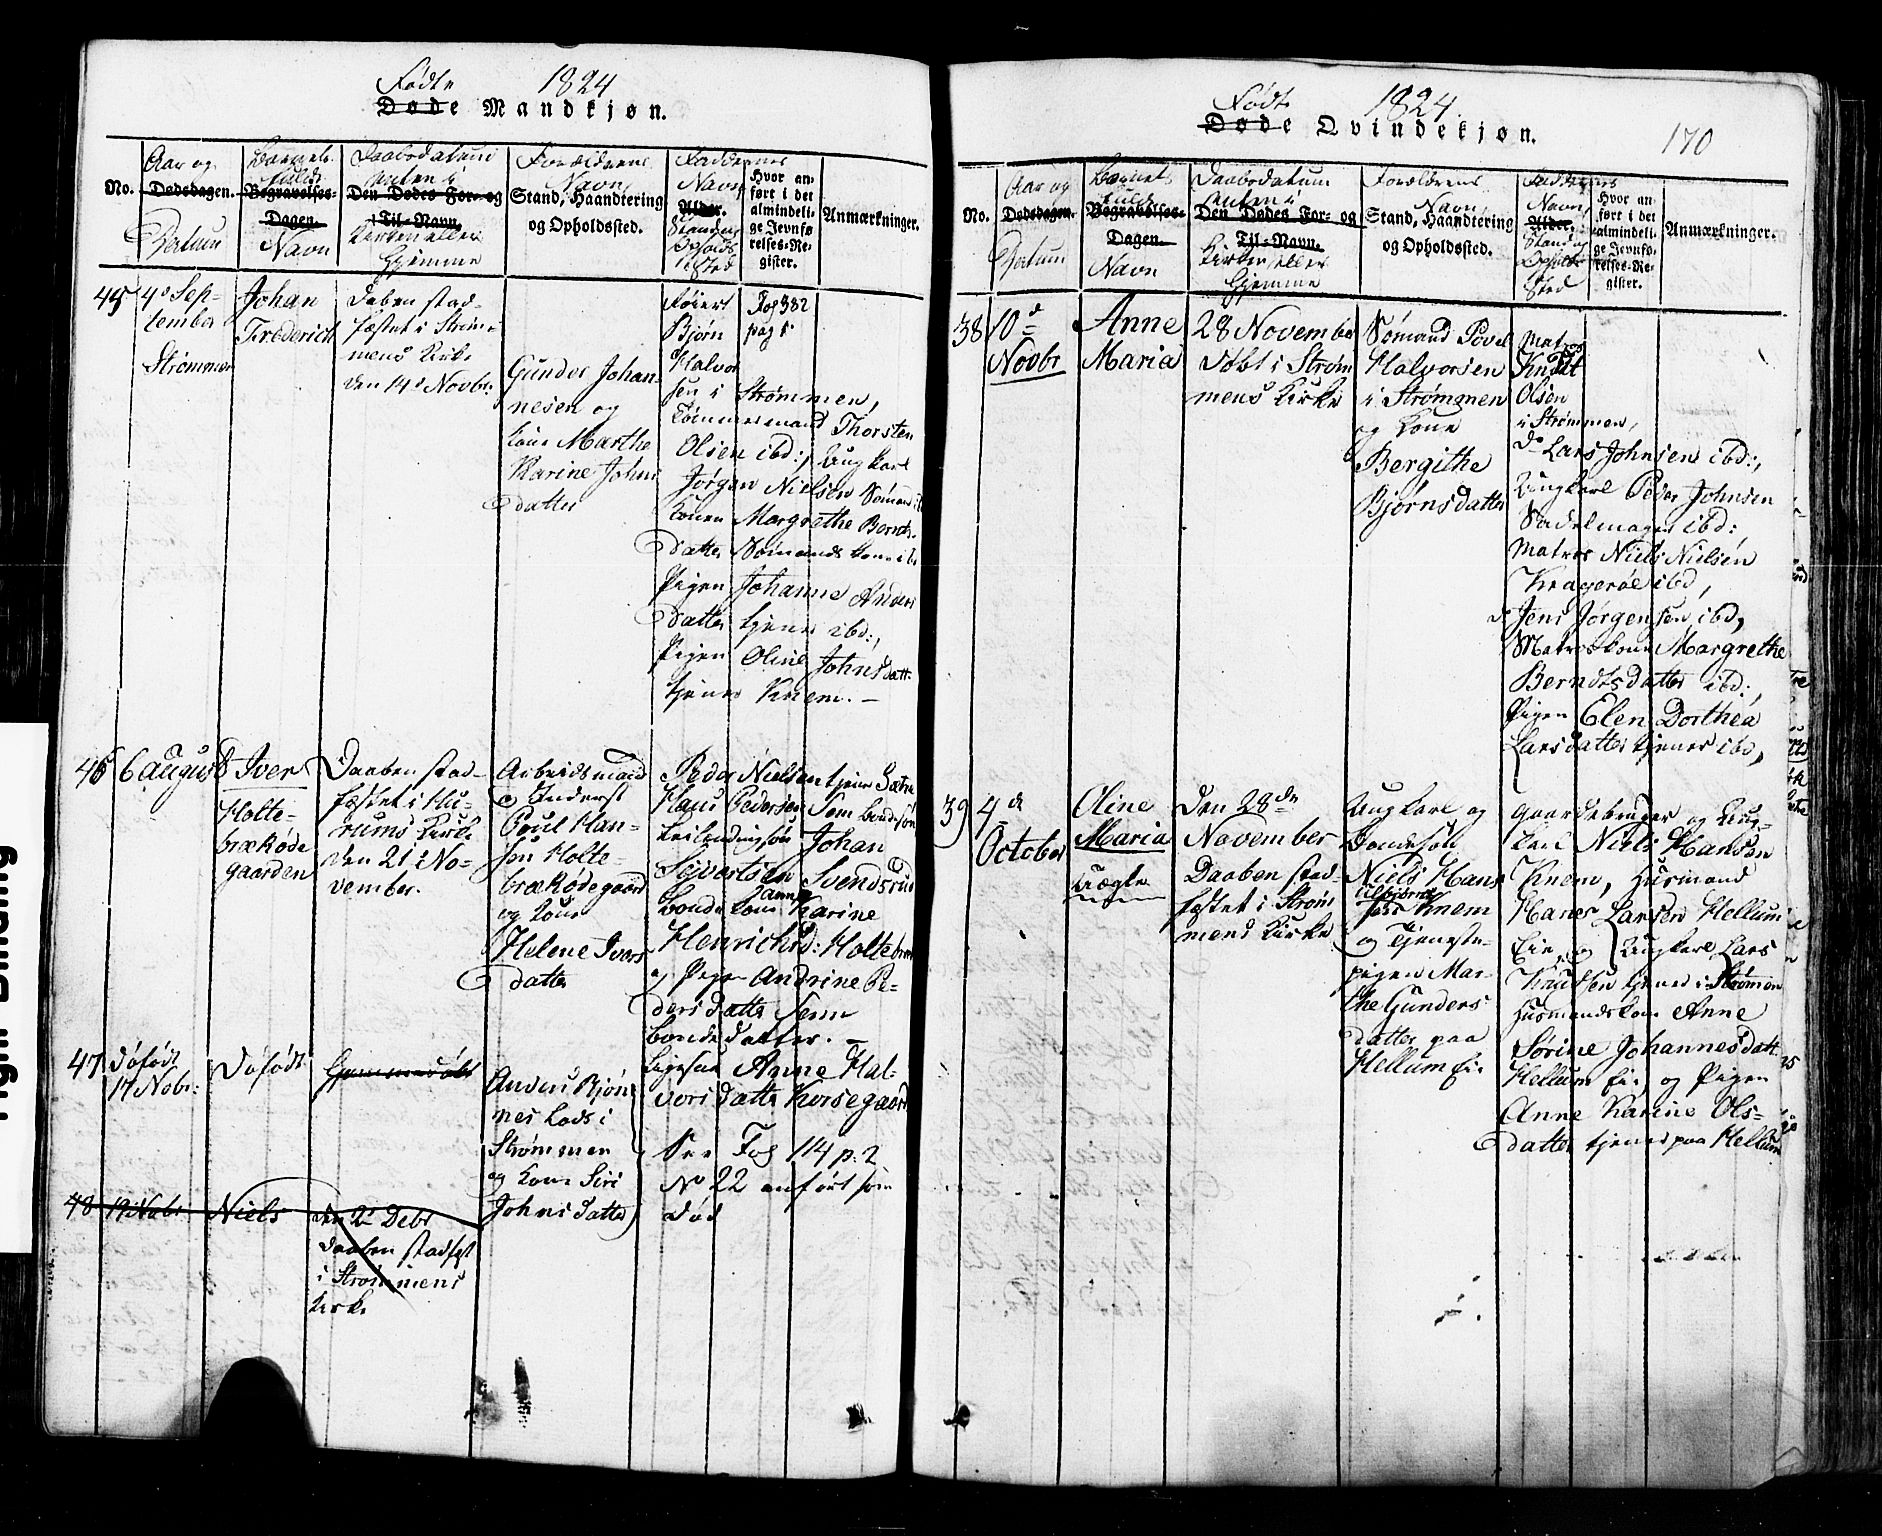 Fødte 1824
Døde Mandkjøn.
No.
Aar og
Dødsdagen.
Datum
Barnets
fulde
Begravelses-
Dagen.
Navn
Daabsdatum
enten i
Den Dødes For- og
Til-Navn.
Kirken eller
Hjemme
Forældrenes
Navn,
Stand, Haandtering
og Opholdssted.
Faddernes
Navn,
Alder.
Stand og
Opholds
Sted
Hvor an-
ført i det
almindeli-
ge Jevnfø-
relses-Re-
gister.
Anmærkninger.
45
4de Sep-
tember
Strømmen
Johan
Frederich
Daaben stad-
fæstet i Strøm-
mens Kirke
den 14de Novbr:
Gunder Johan-
nesen og
Kone Marthe
Karine Johns
datter
Bjørn
Halvor
sen i Strømmen,
Tømmermand Thorsten
Olsen ibd:, Ungkarl
Jørgen Nielsen Sømand
Konen Margrethe Bernts
datter Sømands Kone ib:
Pigen Johanne Anders
datter tjener ibd:,
Pigen Oline Johnsdatt:
tjener Knem. –
Jog 382
pag 1.
46
6 August
Iver
Holte-
brækøde
gaarden
Daaben stad-
fæstet i Hu-
rums Kirke
den 21de No-
vember.
Arbeidsmand
Inderst
Poul Han-
sen Holte-
brækødegaard
og Kone
Helene Ivers
datter
Peder Nielsen tjener
Hans Pedersen Sem bondesøn
Johan
Sivertsen Svendsrud
bonde Kone Anne Karine
Henrichsd: Holtebræk
og Pigen Andrine Pe-
dersdatter Sem
bondedatter. –
Anne Hal-
vorsdatter Korsegaard
47
Døfødt
17 Novbr:
Døfødt
Hjemmedøbt
Anders Bjørn
nes Lods i
Strømmen
og Kone Siri
Johnsdatter
See Jog 114 p. 2
No 22 anført som
død
48
19 Nobr
Niels
den 2de Debr
Daaben stadfæst
i Strømmens
Kirke
Født 1824.
Døde Qvindekjøn.
170
No.
Aar og
Dødsdagen.
Datum
Barnets
fulde
Begravelses-
Dagen.
Navn
Daabsdatum
enten i
Den Dødes For- og
Til-Navn.
Kirken eller
Hjemme
Forældrenes
Navn,
Stand, Haandtering
og Opholdssted.
Faddernes
Navn,
Alder.
Stand og
Opholds
Sted
Hvor an-
ført i det
almindeli-
ge Jevnfø-
relses-Re-
gister.
Anmærkninger.
38
10de
Novbr
Anne
Maria
28 November
Døbt i Strøm
mens Kirke
Sømand Povel
Halvorsen
i Strømmen
og Kone
Bergithe
Bjørnsdatter
Matros
Knud
Olsen
i Strømmen,
do Lars Johnsen ibd:,
Ungkarl Peder Johnsen
Sadelmager ibd:
Matros Niels Nielsen
Kragerøe ibd,
do Jens Jørgensen ibd,
Matroskone Margrethe
Berndtsdatter ibd:,
Pigen Elen Dorthea
Larsdatter tjener ibd,
39
4de
October
Oline
Maria
Uægte
Den 28de
November
Daaben stad-
fæstet i Strøm
mens Kirke
Ungkarl og
Bondesøn
Niels Hans
sen Knem
og Tjeneste-
pigen Mar-
the Gunders
datter paa
Hellum Eie
Gaardebruger og Ung-
karl Niels Hansen
Knem, Husmand
Hans Larsen Hellum
Eie, og Ungkarl Lars
Knudsen tjener i Strømen
Husmandskone Anne
Sørine Johannesdatt.
Hellum Eie, og Pigen
Anne Karine Ols-
datter tjener paa Hellum